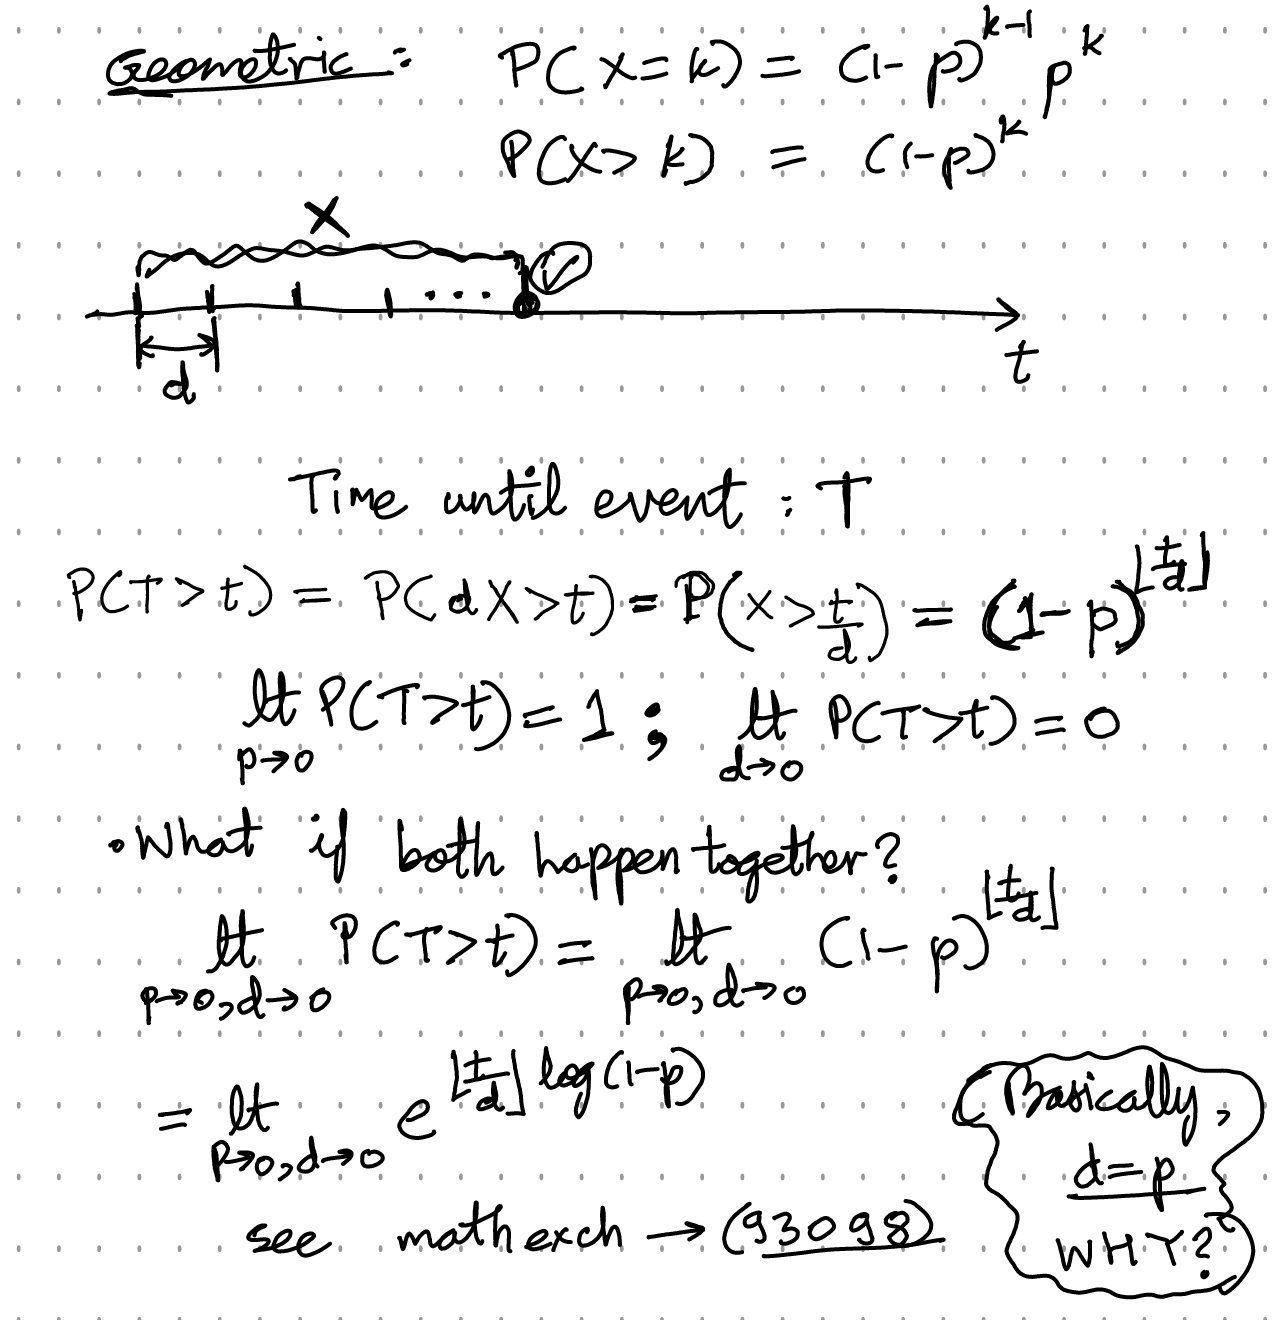 Geometric: P(X=k) = (1-p)^{k-1} p^k
P(X>k) = (1-p)^k
X
d
t
Time until event : T
P(T>t) = P(dX>t) = P(X>t/d) = (1-p)^{⌊t/d⌋}
lt_{p→0} P(T>t) = 1 ; lt_{d→0} P(T>t) = 0
• What if both happen together?
lt_{p→0, d→0} P(T>t) = lt_{p→0, d→0} (1-p)^{⌊t/d⌋}
= lt_{p→0, d→0} e^{⌊t/d⌋ log(1-p)}
see mathexch → (93098)
(Basically,
d=p
WHY?)